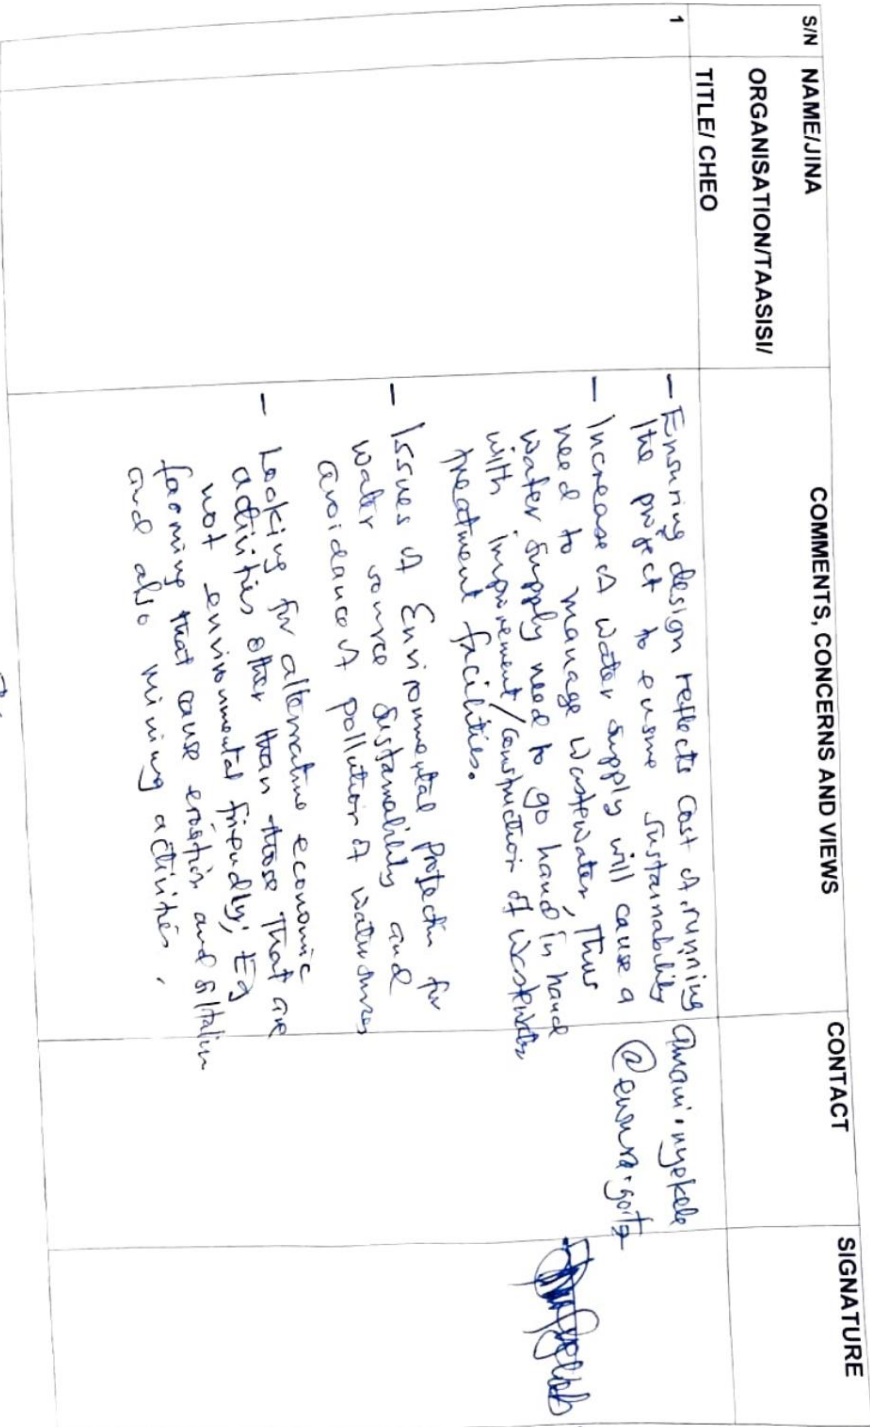 S/N
NAME/JINA
ORGANISATION/TAASISI/
TITLE/ CHEO
COMMENTS, CONCERNS AND VIEWS
CONTACT
SIGNATURE
1
- Ensuring design reflects cost of running
the project to ensure sustainability
- Increase of water supply will cause a
need to manage wastewater, Thus
water supply need to go hand in hand
with improvement/construction of wastewater
treatment facilities.
- Issues of Environmental protectin for
water source sustainability and
avoidance of pollution of water sources
- Looking for alternative economic
activities other than those that are
not environmental friendly; Eg
farming that cause erostion and siltation
and also mining activities.
amani.nyekele
@ewura.go.tz